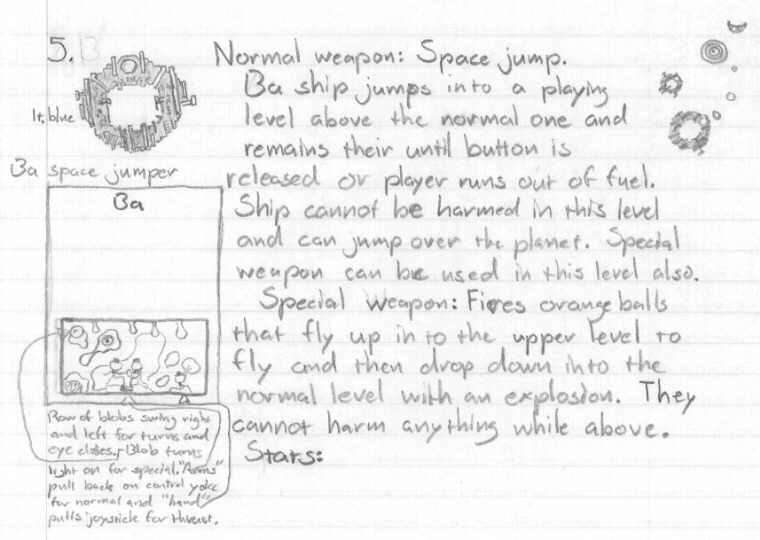 5.
Normal weapon: Space jump.
Ba ship jumps into a playing
level above the normal one and
remains their until button is
released or player runs out of fuel.
Ship cannot be harmed in this level
and can jump over the planet. Special
weapon can be used in this level also.
Special weapon: Fires orange balls
that fly up in to the upper level to
fly and then drop down into the
normal level with an explosion. They
cannot harm anything while above.
Stars:
lt. blue
Ba space jumper
Ba
Row of blobs swing right
and left for turns and
eye closes. Blob turns
light on for special. "Arms"
pull back on control yoke
for normal and "hand"
pulls joystick for thrust.